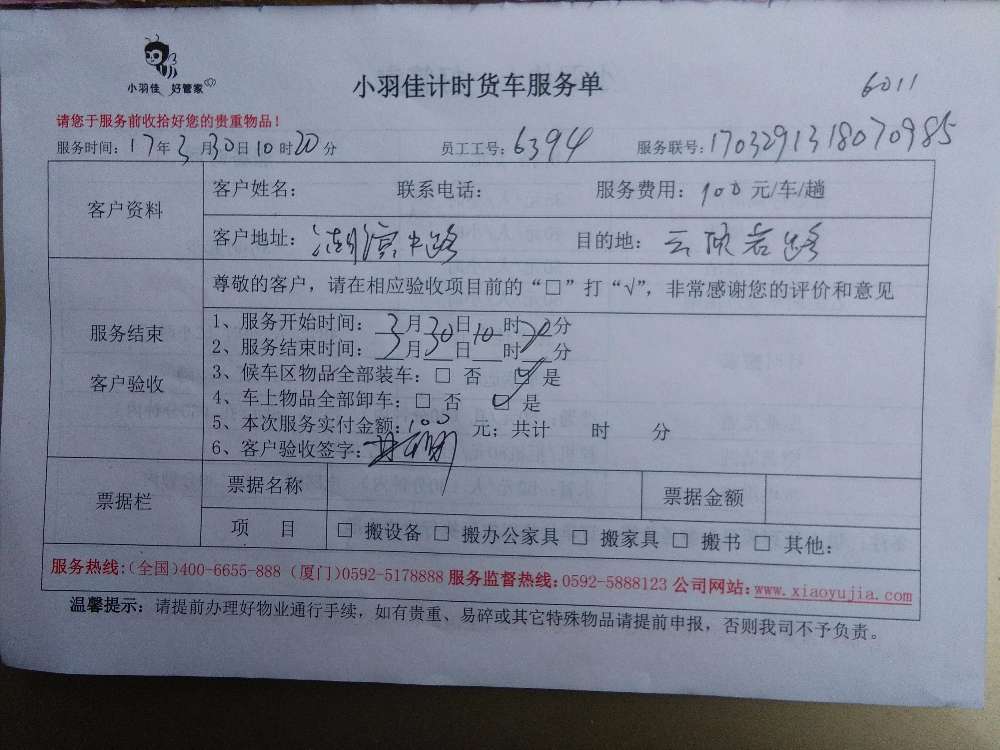 小羽佳 好管家
小羽佳计时货车服务单
6011
请您于服务前收拾好您的贵重物品!
服务时间: 17年3月30日10时20分 员工工号: 6394 服务联号: 1703291318070985
客户资料
客户姓名: 联系电话: 服务费用: 100元/车/趟
客户地址: 湖滨中路 目的地: 云顶岩路
服务结束
客户验收
尊敬的客户,请在相应验收项目前的“□”打“√”,非常感谢您的评价和意见
1、服务开始时间: 3月30日10时20分
2、服务结束时间: 3月30日 时 分
3、候车区物品全部装车:□ 否 ☑ 是
4、车上物品全部卸车:□ 否 ☑ 是
5、本次服务实付金额: 100 元; 共计 时 分
6、客户验收签字:
票据栏
票据名称 票据金额
项 目 □ 搬设备 □ 搬办公家具 □ 搬家具 □ 搬书 □ 其他:
服务热线:(全国)400-6655-888 (厦门)0592-5178888 服务监督热线:0592-5888123 公司网站:www.xiaoyujia.com
温馨提示: 请提前办理好物业通行手续, 如有贵重、易碎或其它特殊物品请提前申报, 否则我司不予负责。